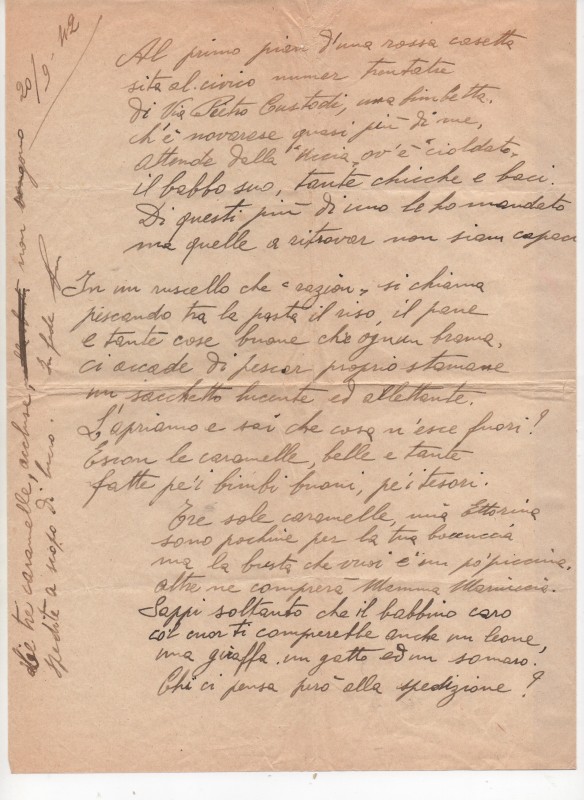 20/9-42
Al primo pian d'una rossa casetta
sita al civico numer trentatre
di Via Pietro Custodi, una bimbetta
ch'è novarese quasi più di me,
attende dalla "Russia, ov'è "cioldato"
il babbo suo, tante chicche e baci.
Di questi più di uno le ho mandato
ma quelle a ritrovar non siam capaci
In un ruscello che "razion" si chiama
pescando tra la pasta il riso, il pane
e tante cose buone che ognun brama,
ci accade di pescar proprio stamane
un sacchetto lucente ed allettante.
L'apriamo e sai che cosa n'esce fuori?
Escon le caramelle, belle e tante
fatte pe'i bimbi buoni, pe'i tesori.
Tre sole caramelle, mia Ettorina
sono pochine per la tua boccuccia
ma la busta che vuoi è un po' piccina,
altre ne comprerà Mamma Mariuccia.
Sappi soltanto che il babbino caro
col cuor ti comprerebbe anche un leone,
una giraffa un gatto ed un somaro.
Chi ci pensa però alla spedizione?
le tre caramelle, accluse, non vengono
spedite a scopo di lucro. In fede